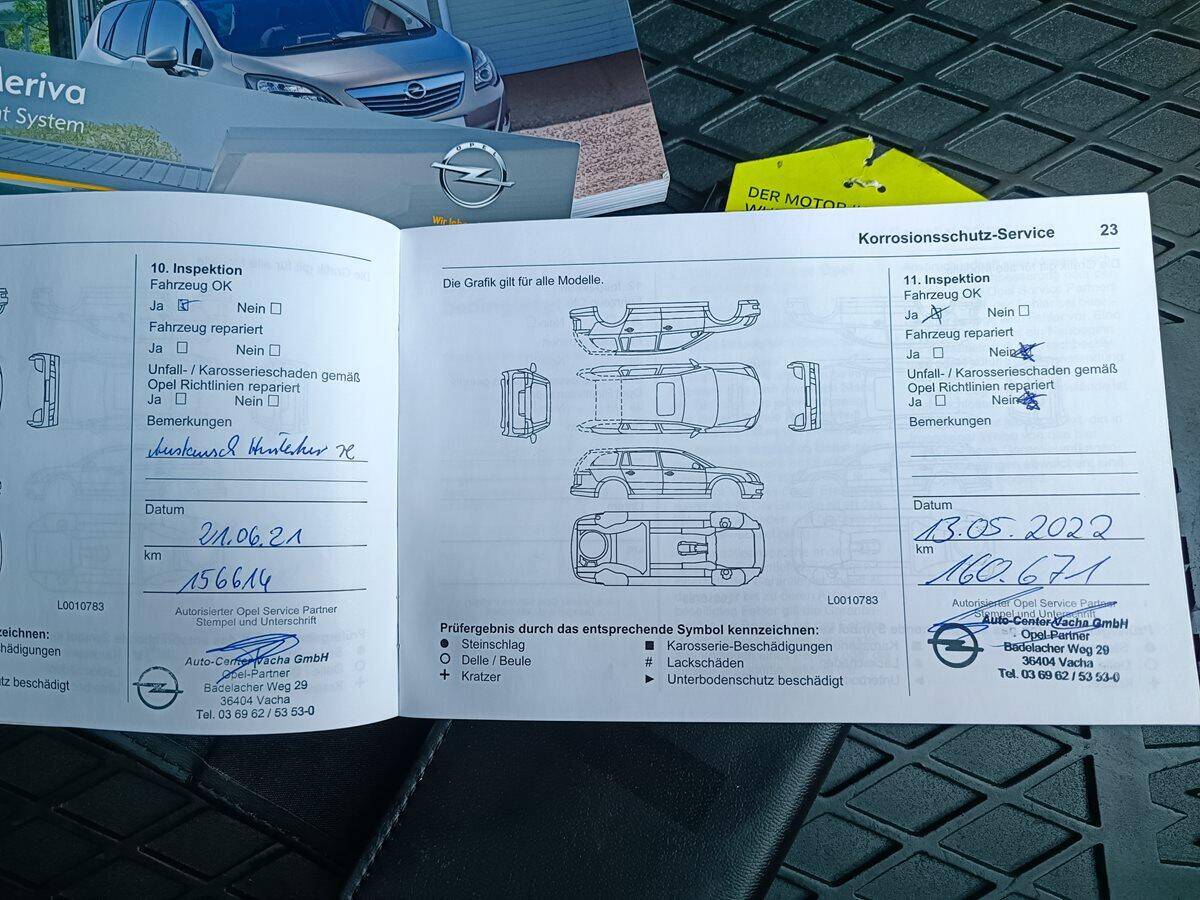 Meriva
nt System
OPEL
DER MOTOR
Korrosionsschutz-Service 23
10. Inspektion
Fahrzeug OK
Ja Nein
Fahrzeug repariert
Ja Nein
Unfall- / Karosserieschaden gemäß
Opel Richtlinien repariert
Ja Nein
Bemerkungen
Austausch
Datum
21.06.21
km
156614
Autorisierter Opel Service Partner
Stempel und Unterschrift
Auto-Center Vacha GmbH
Opel-Partner
Badelacher Weg 29
36404 Vacha
Tel. 03 69 62 / 53 53-0
L0010783
zeichnen:
hädigungen
tz beschädigt
Die Grafik gilt für alle Modelle.
L0010783
Prüfergebnis durch das entsprechende Symbol kennzeichnen:
Steinschlag
Delle / Beule
Kratzer
Karosserie-Beschädigungen
# Lackschäden
Unterbodenschutz beschädigt
11. Inspektion
Fahrzeug OK
Ja Nein
Fahrzeug repariert
Ja Nein
Unfall- / Karosserieschaden gemäß
Opel Richtlinien repariert
Ja Nein
Bemerkungen
Datum
13.05.2022
km
160.671
Autorisierter Opel Service Partner
Stempel und Unterschrift
Auto-Center Vacha GmbH
Opel Partner
Badelacher Weg 29
36404 Vacha
Tel. 03 69 62 / 53 53-0